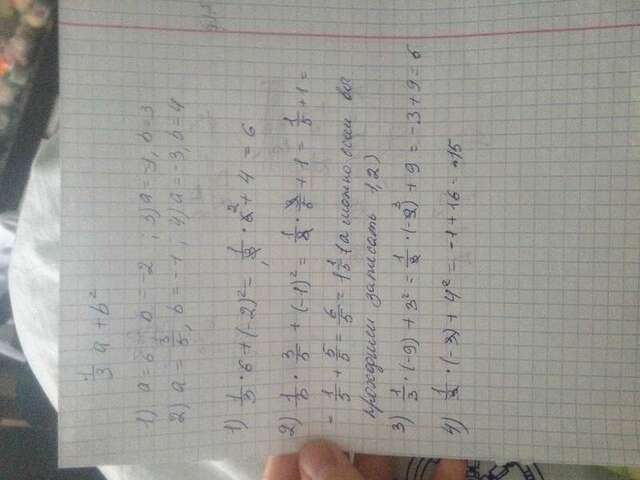 1/3 a + b²
1) a = 6, b = -2 ; 3) a = -9, b = 3
2) a = 3/5, b = -1 ; 4) a = -3, b = 4
1) 1/3 · 6 + (-2)² = 1/3 · 6 ² + 4 = 6
2) 1/3 · 3/5 + (-1)² = 1/3 · 3/5 + 1 = 1/5 + 1 =
= 1/5 + 5/5 = 6/5 = 1 1/5 (а можно если вы
проходили записать 1,2)
3) 1/3 · (-9) + 3² = 1/3 · (-9) ³ + 9 = -3 + 9 = 6
4) 1/3 · (-3) + 4² = -1 + 16 = 15